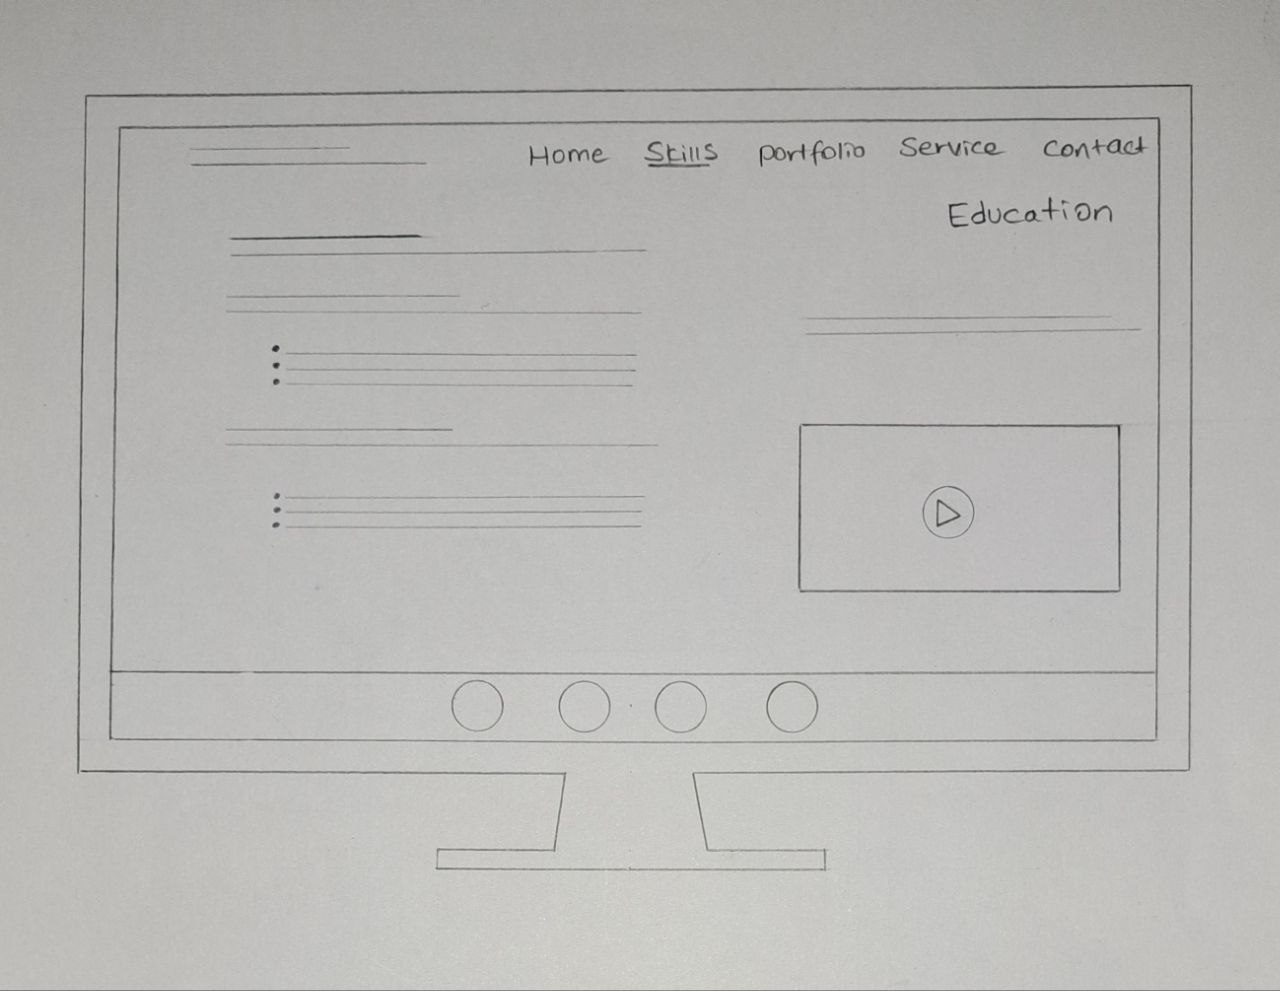 Home Skills portfolio Service Contact
Education